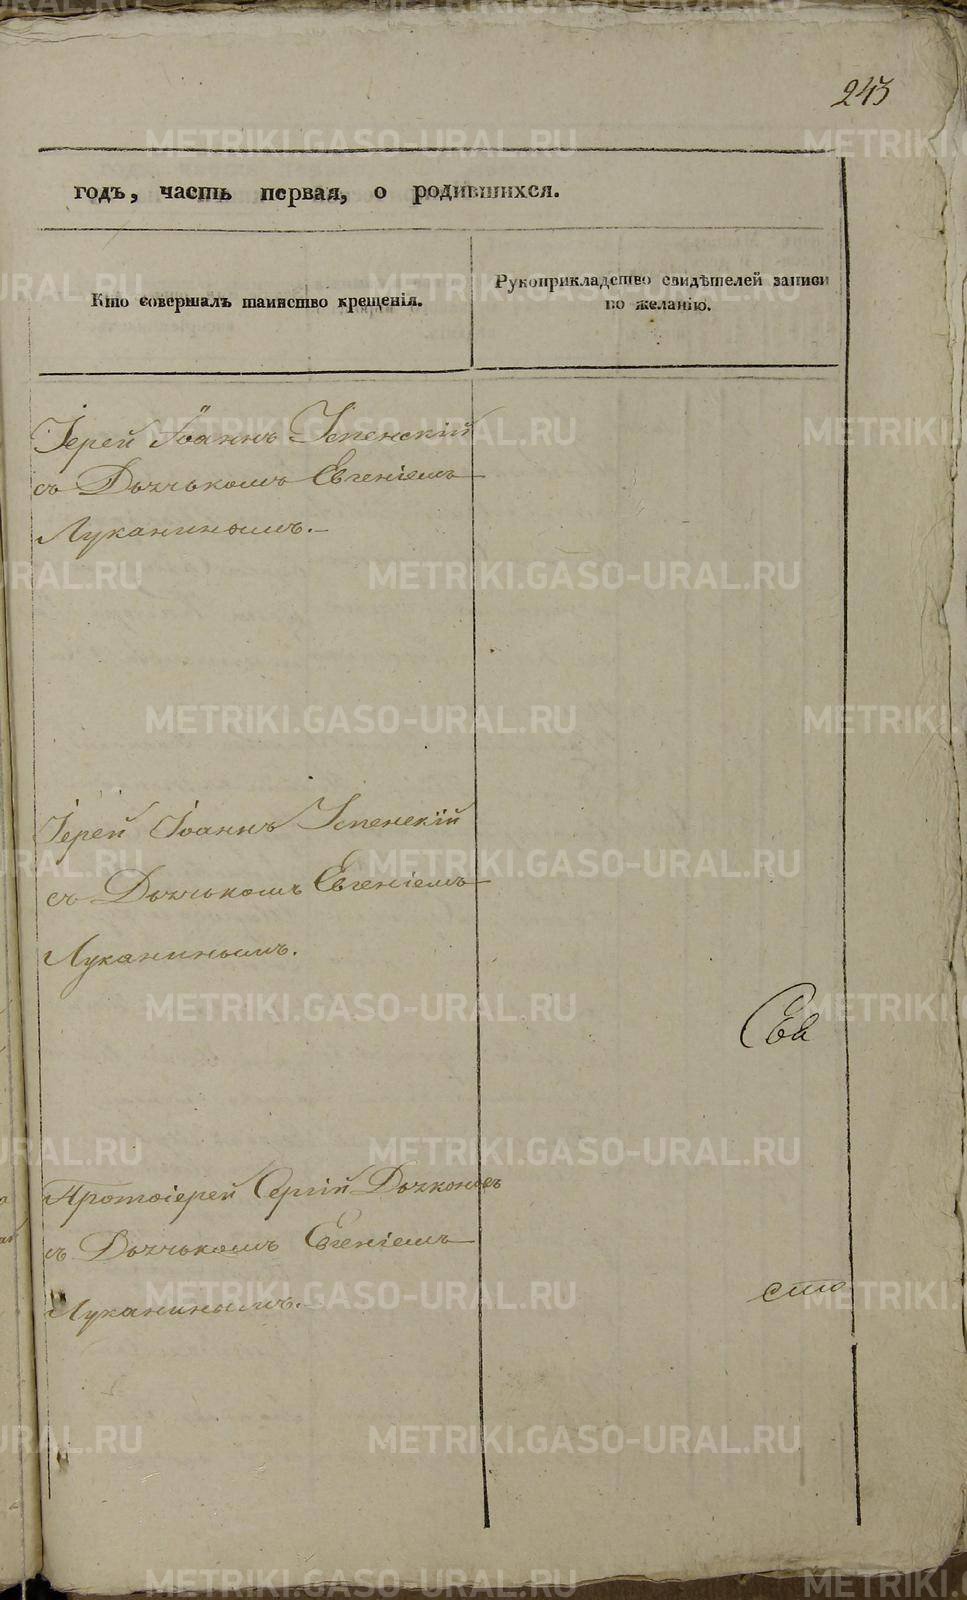 243
годъ, часть первая, о родившихся.
Кто совершалъ таинство крещенія.
Рукоприкладство свидѣтелей записи
по желанію.
Іерей Іоаннъ Успенскій
съ Дьячькомъ Евгеніемъ
Луканинымъ.
Іерей Іоаннъ Успенскій
съ Дьячькомъ Евгеніемъ
Луканинымъ.
Сва
Протоіерей Сергій
съ Дьячькомъ Евгеніемъ
Луканинымъ.
сто
METRIKI.GASO-URAL.RU